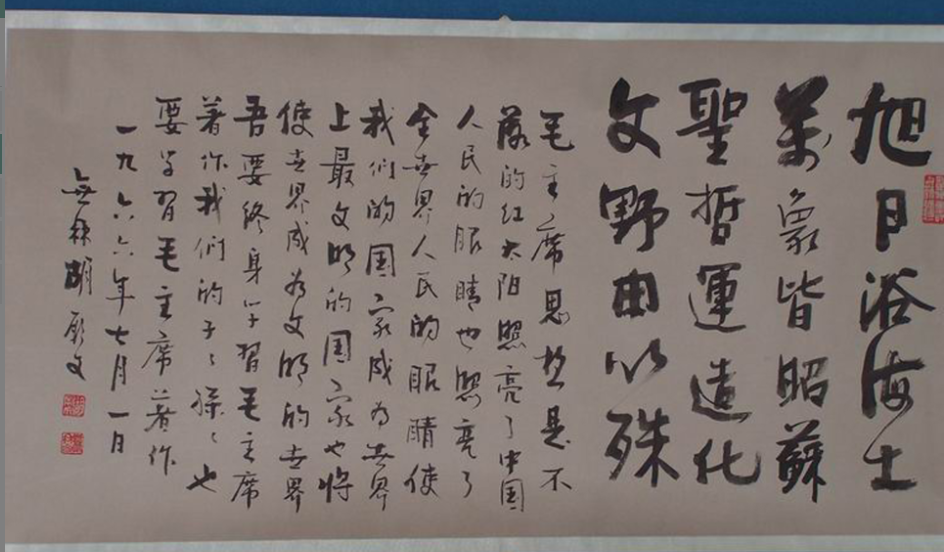 旭日浴海士
萬象皆昭蘇
聖哲運造化
文野由以殊
毛主席思想是不
落的红太阳照亮了中国
人民的眼睛也照亮了
全世界人民的眼睛使
我们的国家成为世界
上最文明的国家也将
使世界成为文明的世界
吾要终身学习毛主席
著作我们的子々孫々也
要学习毛主席著作
一九六六年七月一日
胡厥文